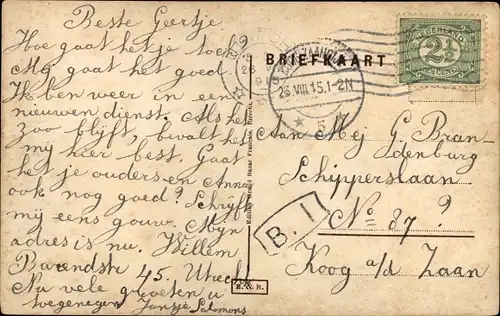 Beste Geertje
Hoe gaat het je toch?
Mij gaat het goed.
Ik ben weer in een
nieuwen dienst. Als het
zoo blijft, bevalt het
mij hier best. Gaat
het je ouders en Anna
ook nog goed? Schrijf
mij eens gouw. Mijn
adres is nu. Willem
Barendstr 45. Utrecht
Na vele groeten u
toegenegen Jansje Salomons
BRIEFKAART
NEDERLAND
2½
CENT
26.VIII.15.1-2N
Aan Mej G. Bran-
denburg
Schipperslaan
No 87?
Koog a/d Zaan
B. 1
B. & R.